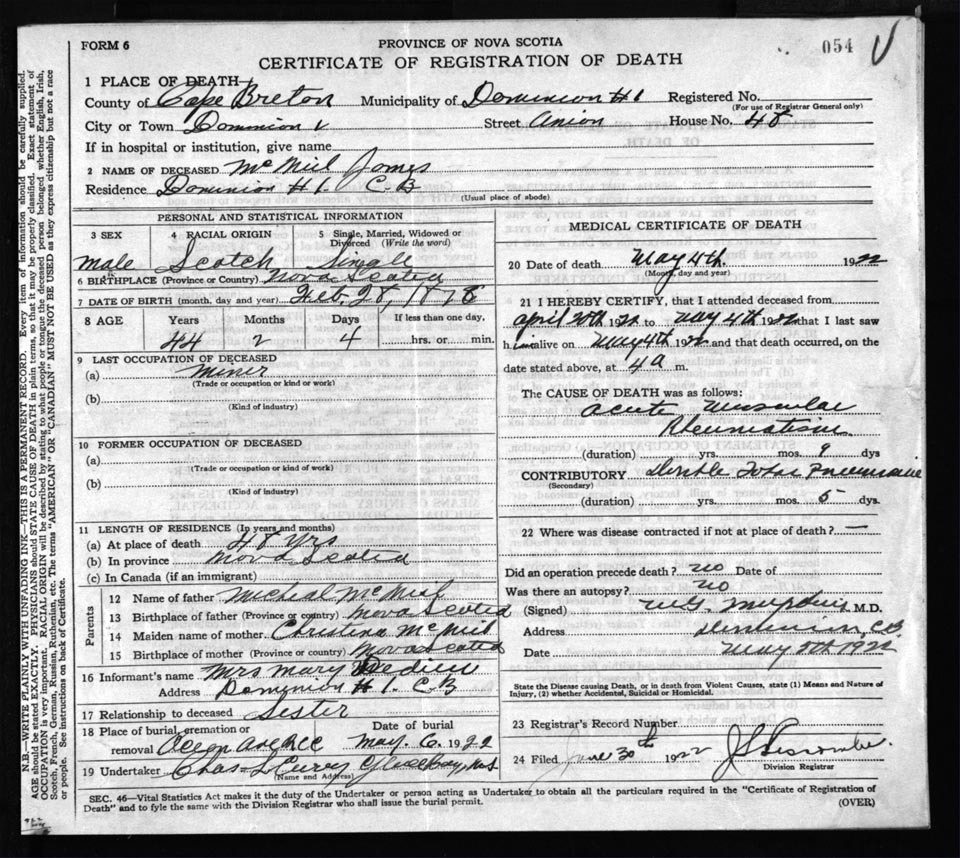 FORM 6
PROVINCE OF NOVA SCOTIA
054
CERTIFICATE OF REGISTRATION OF DEATH
1 PLACE OF DEATH
County of Cape Breton Municipality of Dominion #1 Registered No.
(For use of Registrar General only)
City or Town Dominion 1 Street Union House No. 48
If in hospital or institution, give name
2 NAME OF DECEASED McNiel James
Residence Dominion #1. C.B
(Usual place of abode)
PERSONAL AND STATISTICAL INFORMATION
3 SEX 4 RACIAL ORIGIN 5 Single, Married, Widowed or Divorced (Write the word)
Male Scotch Single
6 BIRTHPLACE (Province or Country) Nova Scotia
7 DATE OF BIRTH (month, day and year) Feb. 28, 1878
8 AGE Years Months Days If less than one day,
44 2 4 hrs. or min.
9 LAST OCCUPATION OF DECEASED
(a) Miner
(Trade or occupation or kind or work)
(b)
(Kind of industry)
10 FORMER OCCUPATION OF DECEASED
(a)
(Trade or occupation or kind of work)
(b)
(Kind of industry)
11 LENGTH OF RESIDENCE (In years and months)
(a) At place of death yrs
(b) In province Nova Scotia
(c) In Canada (if an immigrant)
Parents
12 Name of father Micheal McNiel
13 Birthplace of father (Province or country) Nova Scotia
14 Maiden name of mother Christina McNeil
15 Birthplace of mother (Province or country) Nova Scotia
16 Informant's name Mrs Mary
Address Dominion #1. C.B
17 Relationship to deceased Sister
18 Place of burial, cremation or removal Date of burial
May. 6 1922
19 Undertaker Chas Glace Bay, N.S
(Name and Address)
MEDICAL CERTIFICATE OF DEATH
20 Date of death May 4th. 1922
(Month, day and year)
21 I HEREBY CERTIFY, that I attended deceased from
April 1922 to May 4th 1922 that I last saw
him alive on May 4th 1922 and that death occurred, on the
date stated above, at 4 a m.
The CAUSE OF DEATH was as follows:
Acute Muscular
Rheumatism
(duration) yrs. mos. 9 dys
CONTRIBUTORY Double Pneumonia
(Secondary)
(duration) yrs. mos. 5 dys.
22 Where was disease contracted if not at place of death? —
Did an operation precede death? no Date of
Was there an autopsy? no
(Signed) M.D.
Address Dominion, C.B.
Date May 5th 1922
State the Disease causing Death, or in death from Violent Causes, state (1) Means and Nature of
Injury, (2) whether Accidental, Suicidal or Homicidal.
23 Registrar's Record Number
24 Filed June 30th 1922
Division Registrar
SEC. 46—Vital Statistics Act makes it the duty of the Undertaker or person acting as Undertaker to obtain all the particulars required in the "Certificate of Registration of
Death" and to fyle the same with the Division Registrar who shall issue the burial permit.
(OVER)
N.B.—WRITE PLAINLY WITH UNFADING INK—THIS IS A PERMANENT RECORD. Every item of information should be carefully supplied.
AGE should be stated EXACTLY. PHYSICIANS should STATE CAUSE OF DEATH in plain terms, so that it may be properly classified. Exact statement of
OCCUPATION is very important. RACIAL ORIGIN will be described by stating to what people or tongue the deceased person belonged whether English, Irish,
Scotch, French, German, Russian, Ruthenian, etc. The terms "AMERICAN" OR "CANADIAN" MUST NOT BE USED as they express citizenship but not a race
or people. See instructions on back of Certificate.